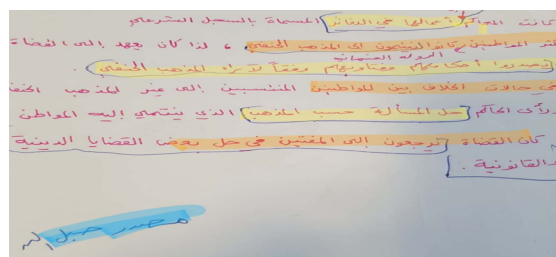 كانت المحاكم أعمالها في الدفاتر المسماة بالسجل الشرعي
المواطنين كانوا ينتمون إلى المذهب الحنفي، لذا كان يعهد إلى القضاة
الدولة العثمانية
ليصدروا أحكامهم وفتاويهم وفقاً لآراء المذهب الحنفي
في حالات الخلاف بين المواطنين المنتسبين إلى غير المذهب
الحاكم حل المسألة حسب المذهب الذي ينتمي إليه المواطن
كان القضاة يرجعون إلى المفتين في حل بعض القضايا الدينية
والقانونية.
مصدر